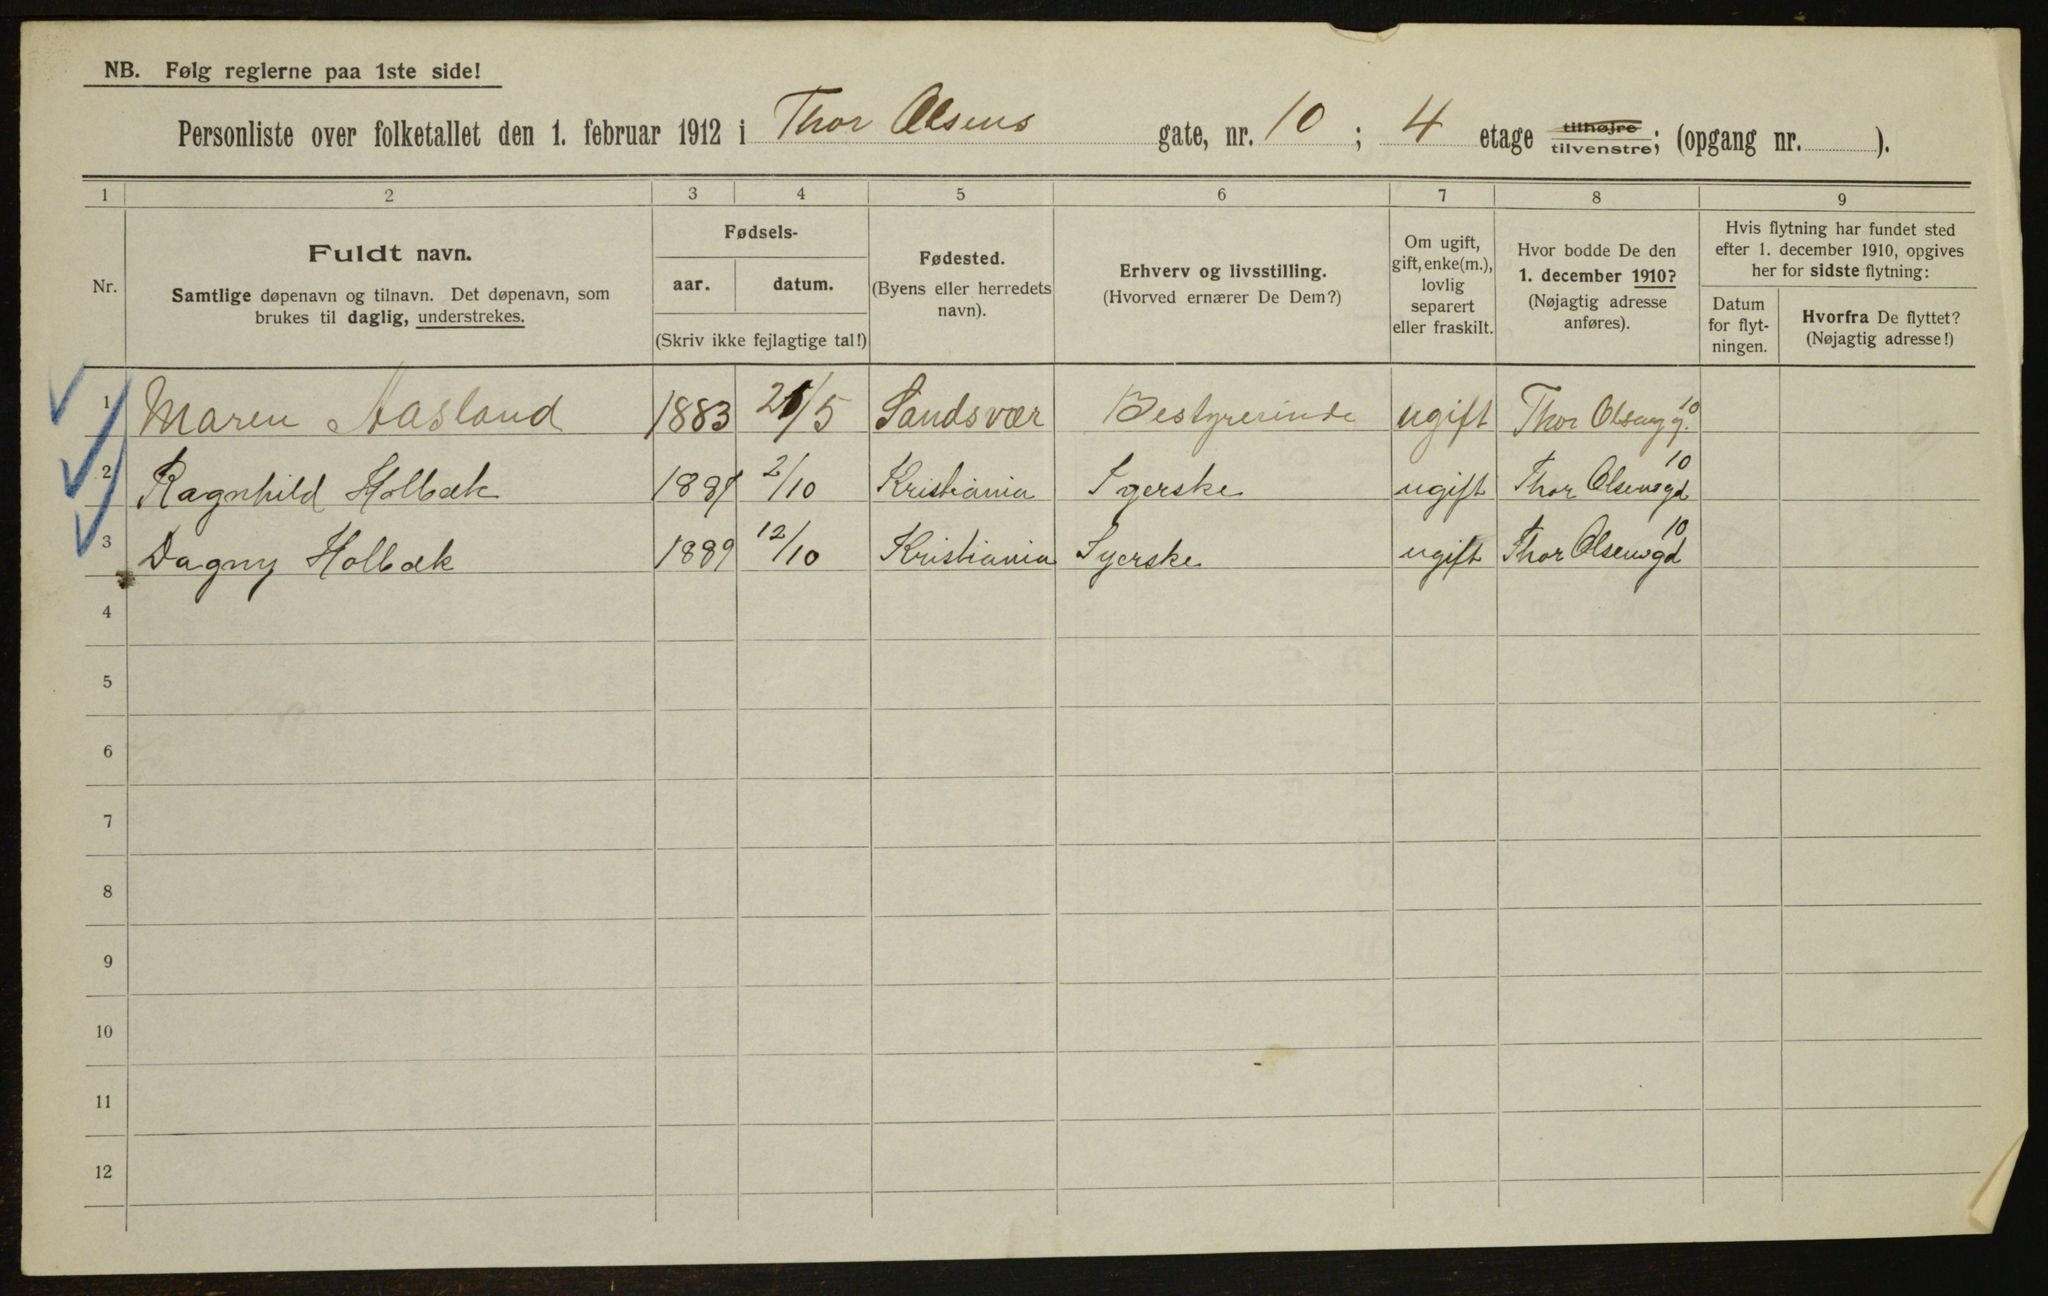 NB. Følg reglerne paa 1ste side!
Personliste over folketallet den 1. februar 1912 i Thor Olsens gate, nr. 10 ; 4 etage tilhøjre tilvenstre; (opgang nr. ).
1 2 3 4 5 6 7 8 9
Nr.
Fuldt navn.
Samtlige døpenavn og tilnavn. Det døpenavn, som
brukes til daglig, understrekes.
Fødsels-
aar. datum.
(Skriv ikke fejlagtige tal!)
Fødested.
(Byens eller herredets
navn).
Erhverv og livsstilling.
(Hvorved ernærer De Dem?)
Om ugift,
gift, enke(m.),
lovlig
separert
eller fraskilt.
Hvor bodde De den
1. december 1910?
(Nøjagtig adresse
anføres).
Hvis flytning har fundet sted
efter 1. december 1910, opgives
her for sidste flytning:
Datum
for flyt-
ningen.
Hvorfra De flyttet?
(Nøjagtig adresse!)
1 Maren Aasland 1883 /5 Sandsvær Bestyrerinde ugift Thor Olsens g. 10
2 Ragnhild Holbæk 2/10 Kristiania Syerske ugift Thor Olsensgd 10
3 Dagny Holbæk 1889 12/10 Kristiania Syerske ugift Thor Olsensgd 10
4
5
6
7
8
9
10
11
12